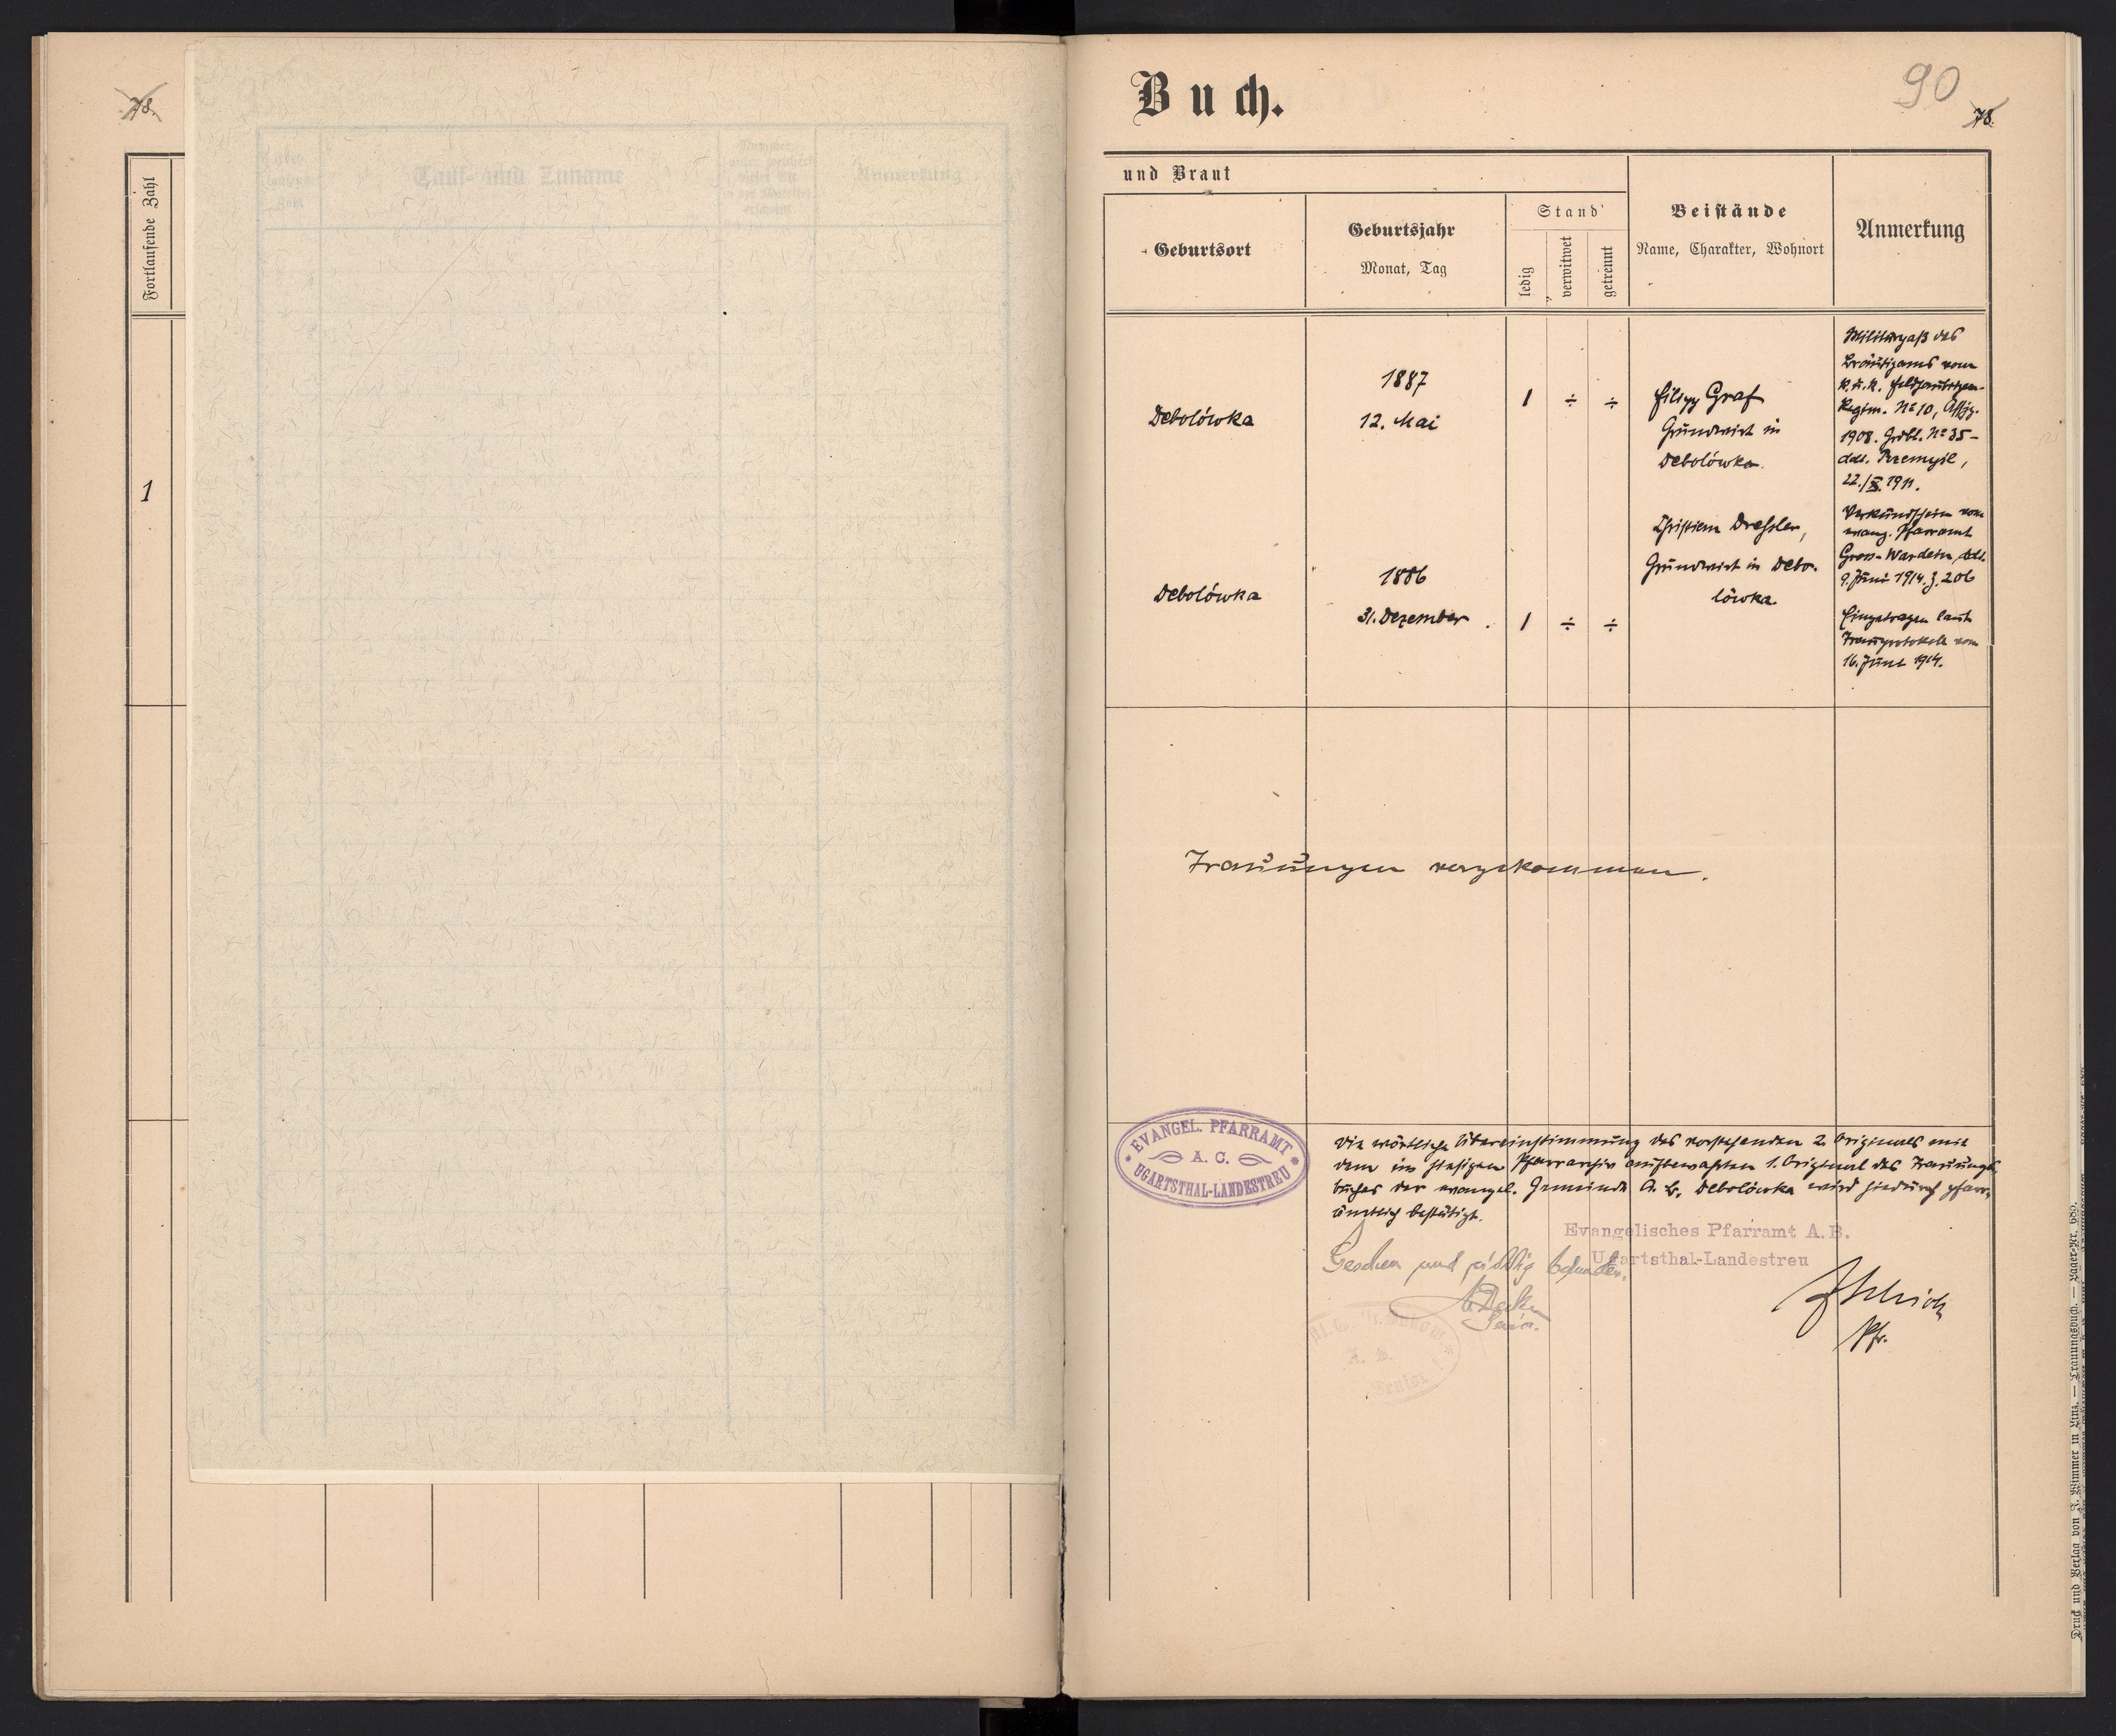 78.
Fortlaufende Zahl
1
Tauf- und Zuname
Anmerkung
Buch.
90
78.
und Braut
Geburtsort
Geburtsjahr
Monat, Tag
Stand
ledig
verwitwet
getrennt
Beistände
Name, Charakter, Wohnort
Anmerkung
Debolówka
1887
12. Mai
1 ÷ ÷
Filipp Graf
Grundwirt in
Debolówka.
Debolówka
1886
31. Dezember.
1 ÷ ÷
Christian Dressler,
Grundwirt in Debo-
lówka.
Militärpaß des
Bräutigams vom
k. u. k. Feldhaubitzen-
Regim. No 10, Assj.
1908. Grdbl. No 35-
ddt. Przemysl,
22./X. 1911.
Verkündschein vom
evang. Pfarramt
Gross-Wardein, ddt.
9. Juni 1914. Z. 206
Eingetragen laut
Trauprotokoll vom
16. Juni 1914.
Trauungen vorgekommen.
EVANGEL. PFARRAMT
A. C.
UGARTSTHAL-LANDESTREU
Die wörtliche Übereinstimmung des vorstehenden 2. Originales mit
dem im hiesigen Pfarrarchiv aufbewahrten 1. Original des Trauungs-
buches der evangel. Gemeinde A. B. Debolówka wird hiedurch pfarr-
ämtlich bestätigt.
Evangelisches Pfarramt A.B.
Ugartsthal-Landestreu
Gesehen und richtig befunden.
Senior
Pfr.
Druck und Verlag von J. Wimmer in Linz. — Trauungsbuch. — Lager-Nr. 685.